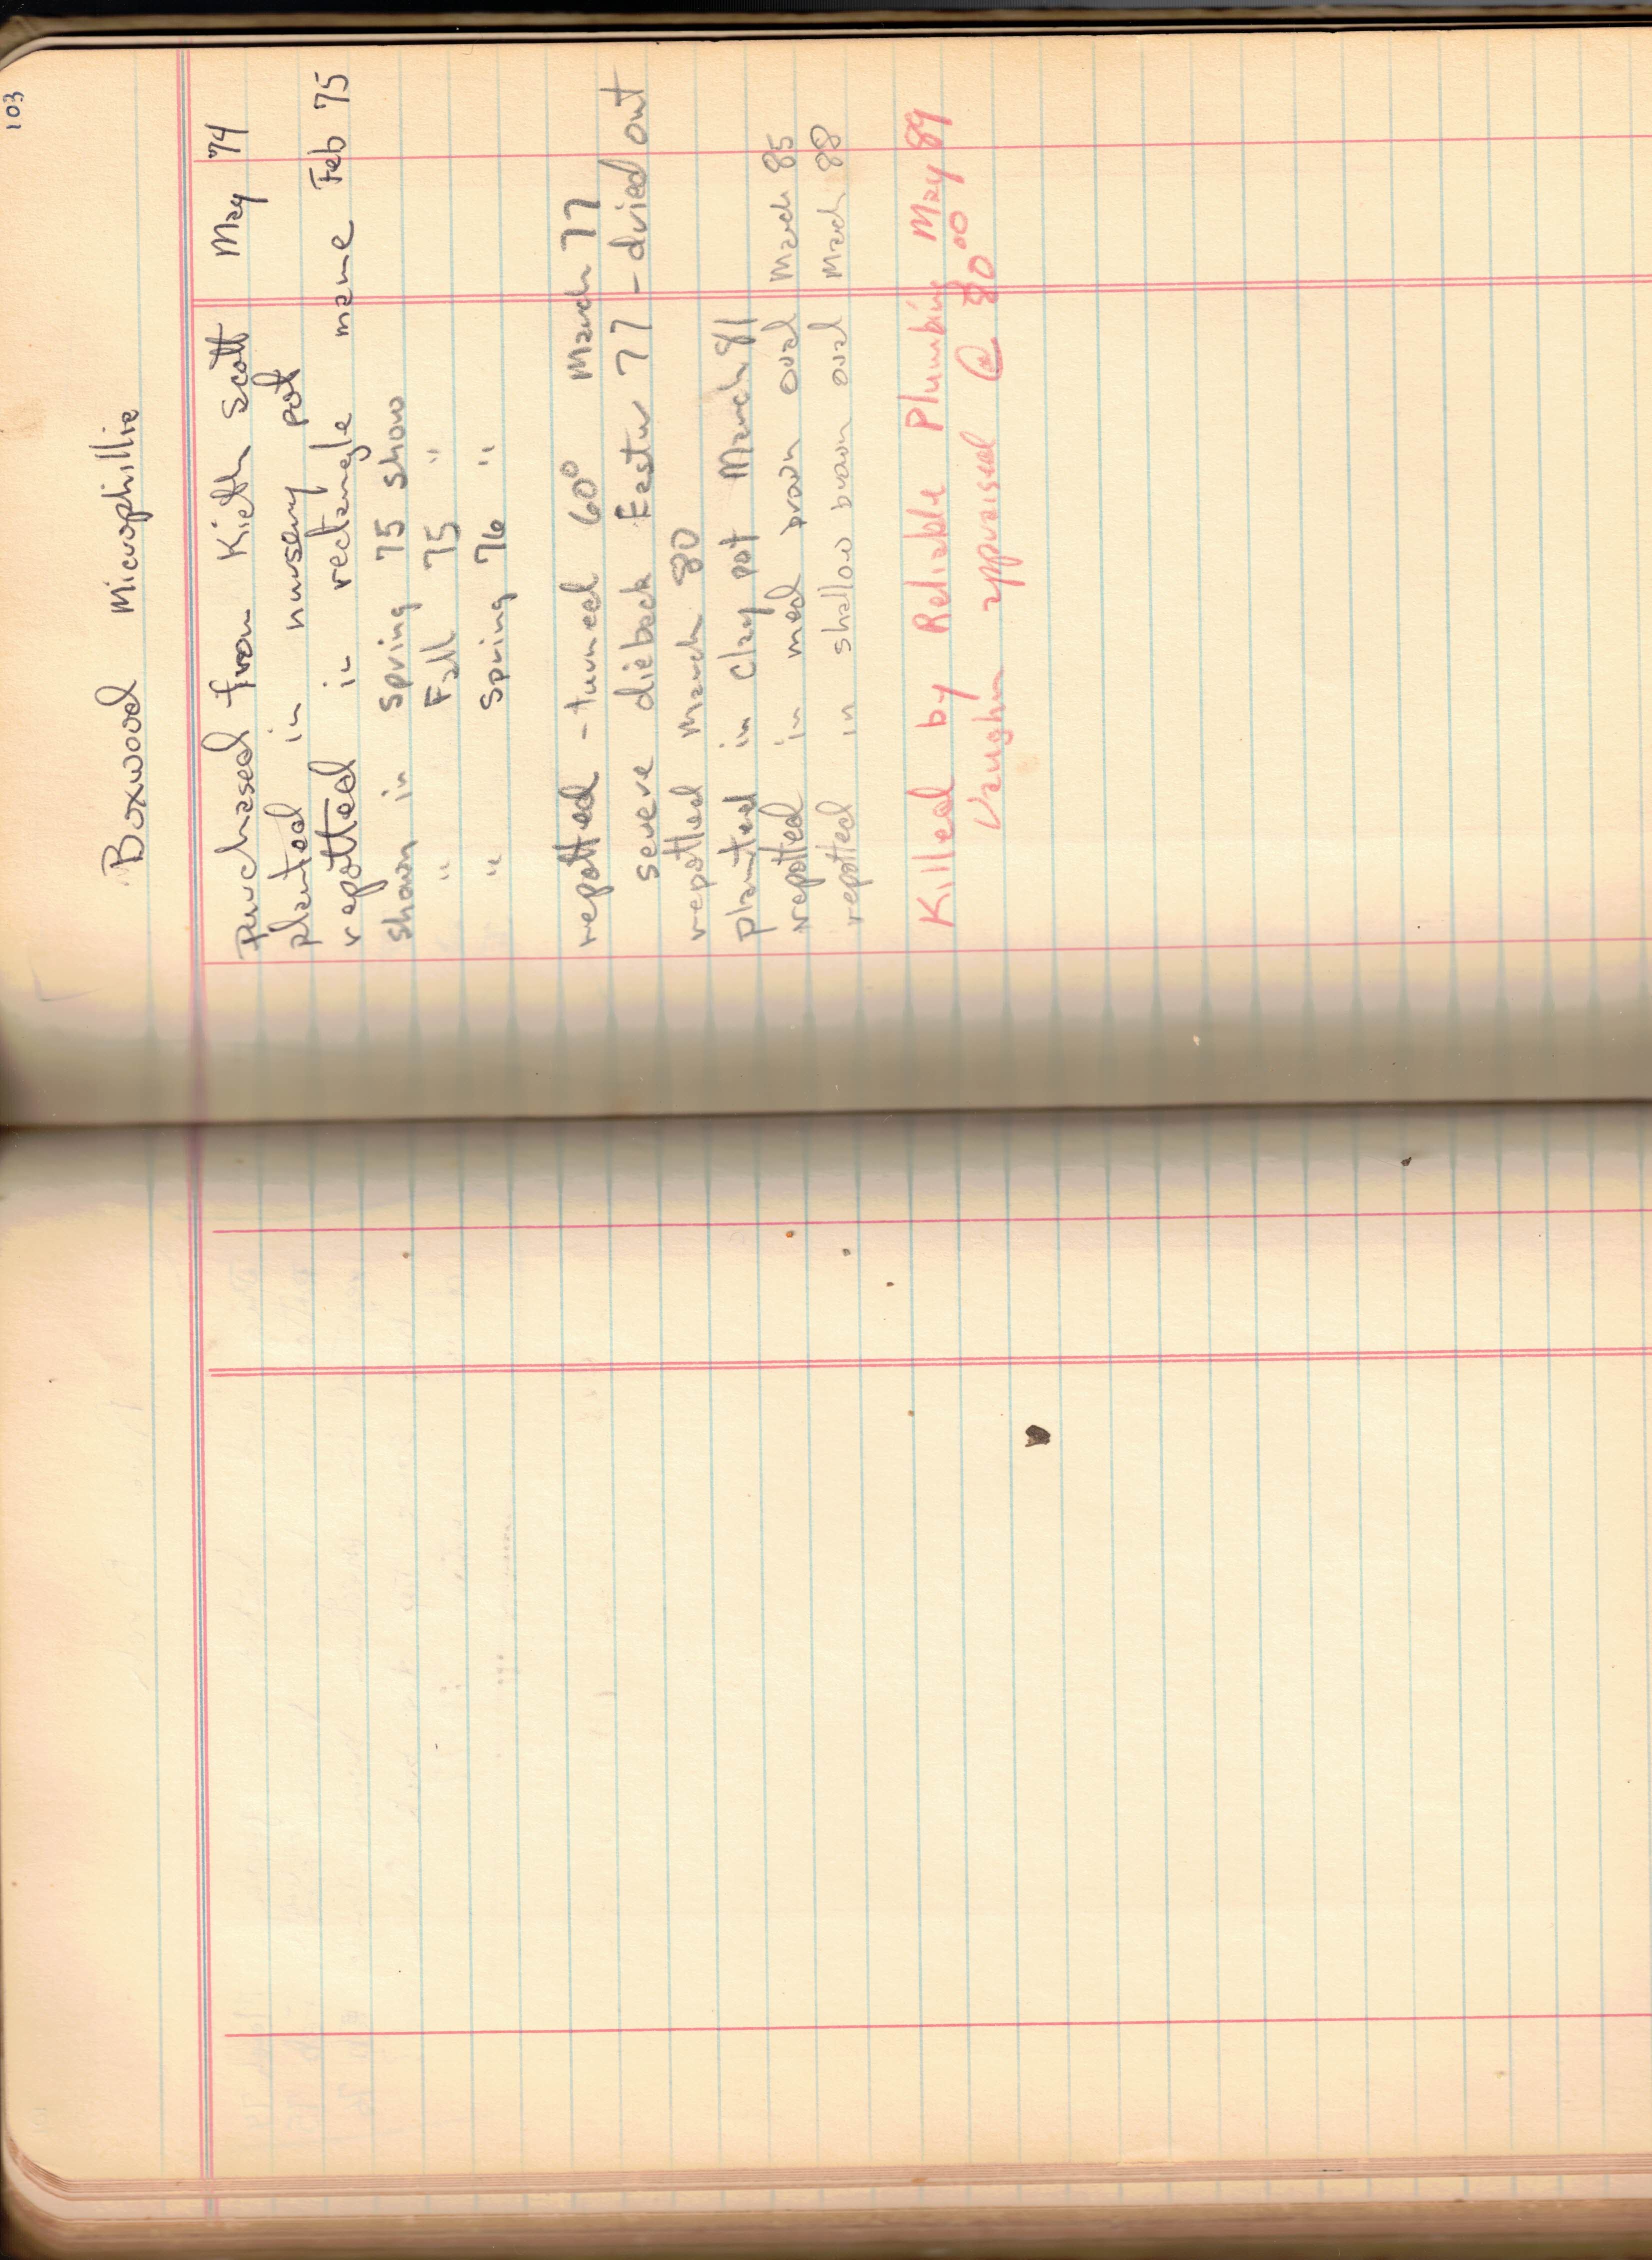 103
Boxwood Microphillia
Purchased from Kieth Scott May 74
planted in nursery pot
repotted in rectangle mame Feb 75
shown in Spring 75 show
" Fall 75 "
" Spring 76 "
repotted - turned 60° March 77
severe dieback Easter 77 - dried out
repotted March 80
planted in clay pot March 81
repotted in med brown oval March 85
repotted in shallow brown oval March 88
Killed by Reliable Plumbing May 89
Vaughn appraised @ 80⁰⁰